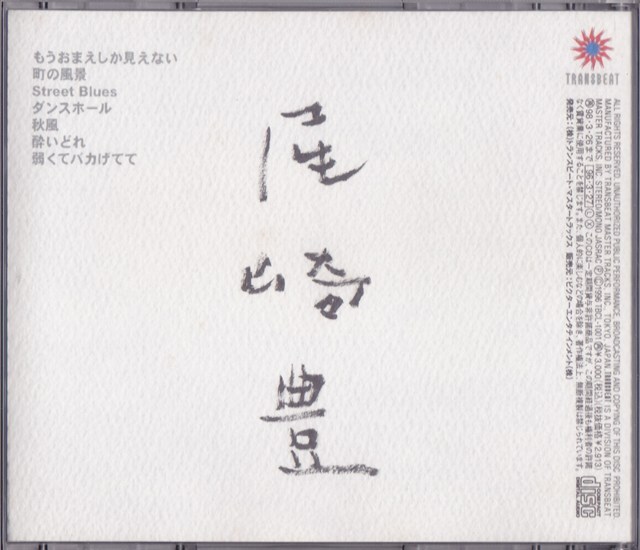 もうおまえしか見えない
町の風景
Street Blues
ダンスホール
秋風
酔いどれ
弱くてバカげてて
尾崎豊
TRANSBEAT
ALL RIGHTS RESERVED. UNAUTHORIZED PUBLIC PERFORMANCE, BROADCASTING AND COPYING OF THIS DISC PROHIBITED.
MANUFACTURED BY TRANSBEAT MASTER TRACKS, INC., TOKYO, JAPAN. TRANSBEAT IS A DIVISION OF TRANSBEAT
MASTER TRACKS, INC. STEREO/MONO JASRAC Ⓟ Ⓒ 1996 TBCL-1001 ¥3,000(税込)(税抜価格¥2,913)
98・3・26まで 96・3・27
発売元:(株)トランスビート・マスタートラックス 販売元:ビクターエンタテインメント(株)
COMPACT
disc
DIGITAL AUDIO